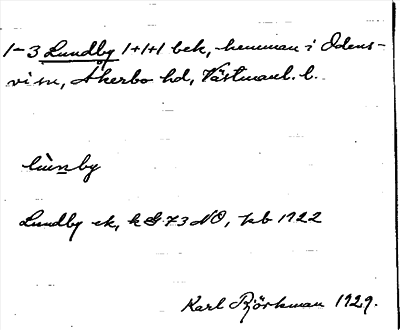 1-3 Lundby 1+1+1 bek, hemman i Odens-
vi sn, Åkerbo hd, Västmanl. l.
lùnby
Lundby ek, k G.73 NO, jb 1722
Karl Björkman 1929.